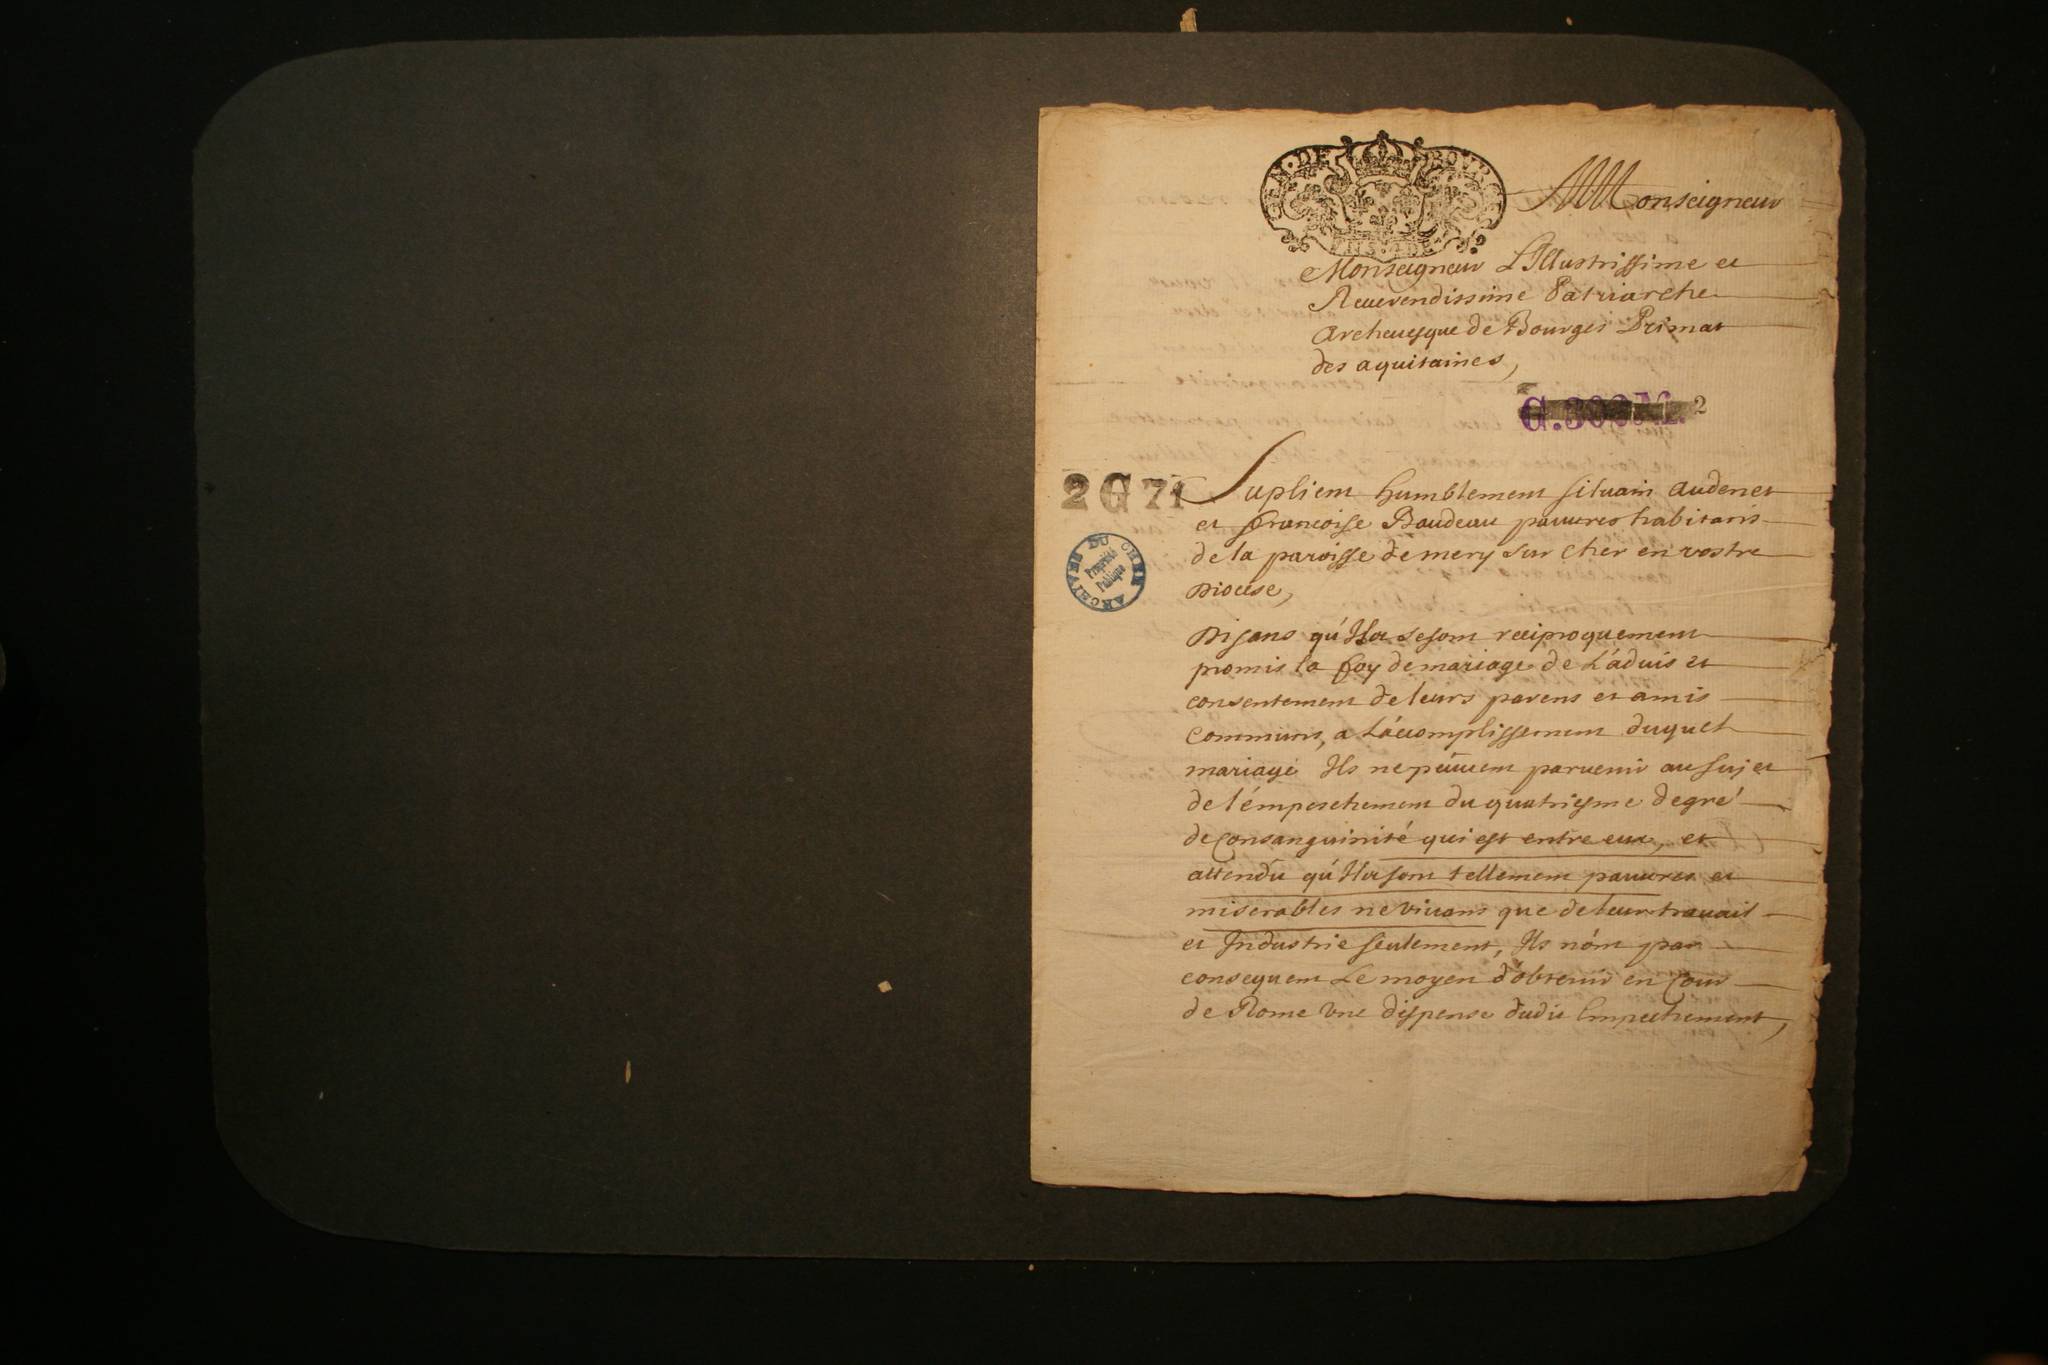 GEN. DE BOURGES
A Monseigneur
Monseigneur L'Illustrissime et
Reuerendissime Patriarche
Archeuesque de Bourges Primat
des aquitaines,
G. 300 M. 2
2 G 71
Suplient humblement siluain audenet
et francoise Baudeau pauures habitans
de la paroisse de mery sur Cher en vostre
Diocese,
ARCHIVES DU CHER
Propriété
Publique
Disans qu'Ils se sont reciproquement
promis la foy de mariage de L'aduis et
consentement de leurs parens et amis
communs, a L'acomplissement duquel
mariage Ils ne peuuent paruenir au sujet
de l'empeschement du quatriesme degré
de Consanguinité qui est entre eux, et
attendu qu'Ils sont tellement pauures et
miserables ne viuans que de leur trauail
et Industrie seulement, Ils n'ont par
consequent Le moyen d'obtenir en Cour
de Rome vne dispense dudit Empechement,